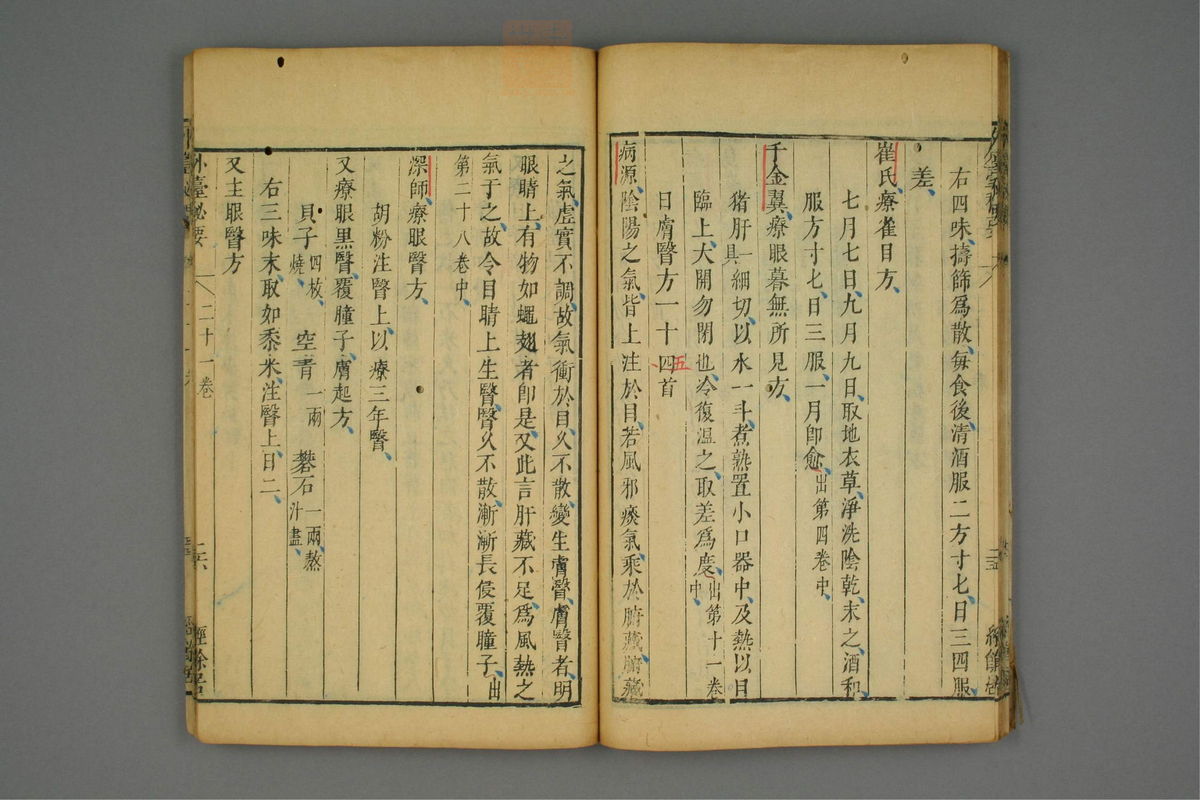 右四味擣篩爲散每食後清酒服二方寸七日三四服
差
崔氏療雀目方
七月七日九月九日取地衣草淨洗陰乾末之酒和
服方寸七日三服一月卽愈出第四卷中
千金翼療眼暮無所見方
猪肝一具細切以水一斗煮熟置小口器中及熱以目
臨上大開勿閉也冷復溫之取差爲度出第十一卷中
目膚瞖方一十四首
五
病源陰陽之氣皆上注於目若風邪痰氣乘於腑藏腑藏
之氣虛實不調故氣衝於目久不散變生膚瞖膚瞖者明
眼睛上有物如蠅翅者卽是又此言肝藏不足爲風熱之
氣干之故令目睛上生瞖瞖久不散漸漸長侵覆瞳子出
第二十八卷中
深師療眼瞖方
胡粉注瞖上以療三年瞖
又療眼黑瞖覆瞳子膚起方
貝子四枚燒 空青一兩 礬石一兩熬汁盡
右三味末取如黍米注瞖上日二
又主眼瞖方
外臺秘要 二十一卷 二六 經餘居